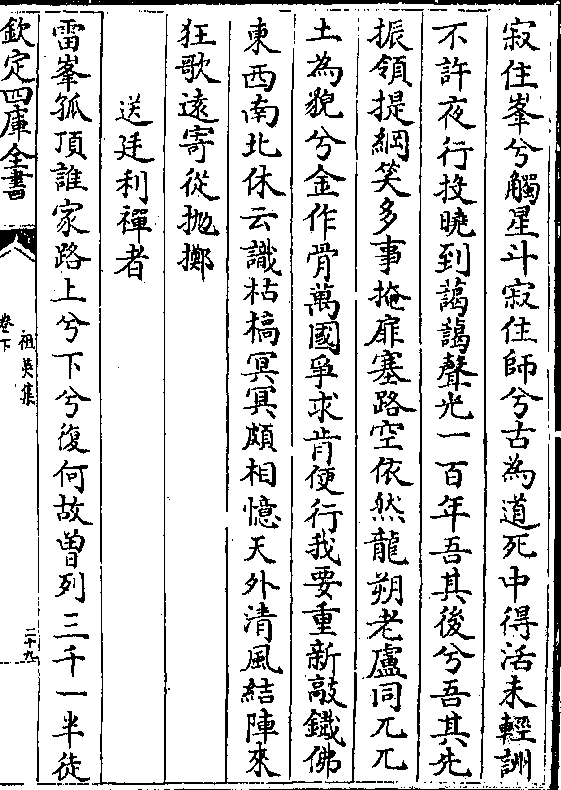 寂住峯兮觸星斗寂住師兮古為道死中得活未輕詶
不許夜行投曉到藹藹聲光一百年吾其後兮吾其先
振領提綱笑多事掩扉塞路空依然龍朔老盧同兀兀
土為貌兮金作骨萬國爭求肯便行我要重新敲鐵佛
東西南北休云識枯槁冥冥頗相憶天外清風結陣來
狂歌遠寄從拋擲
送廷利禪者
雷峯孤頂誰家路上兮下兮復何故曽列三千一半徒
欽定四庫全書
祖英集
卷下
二十九